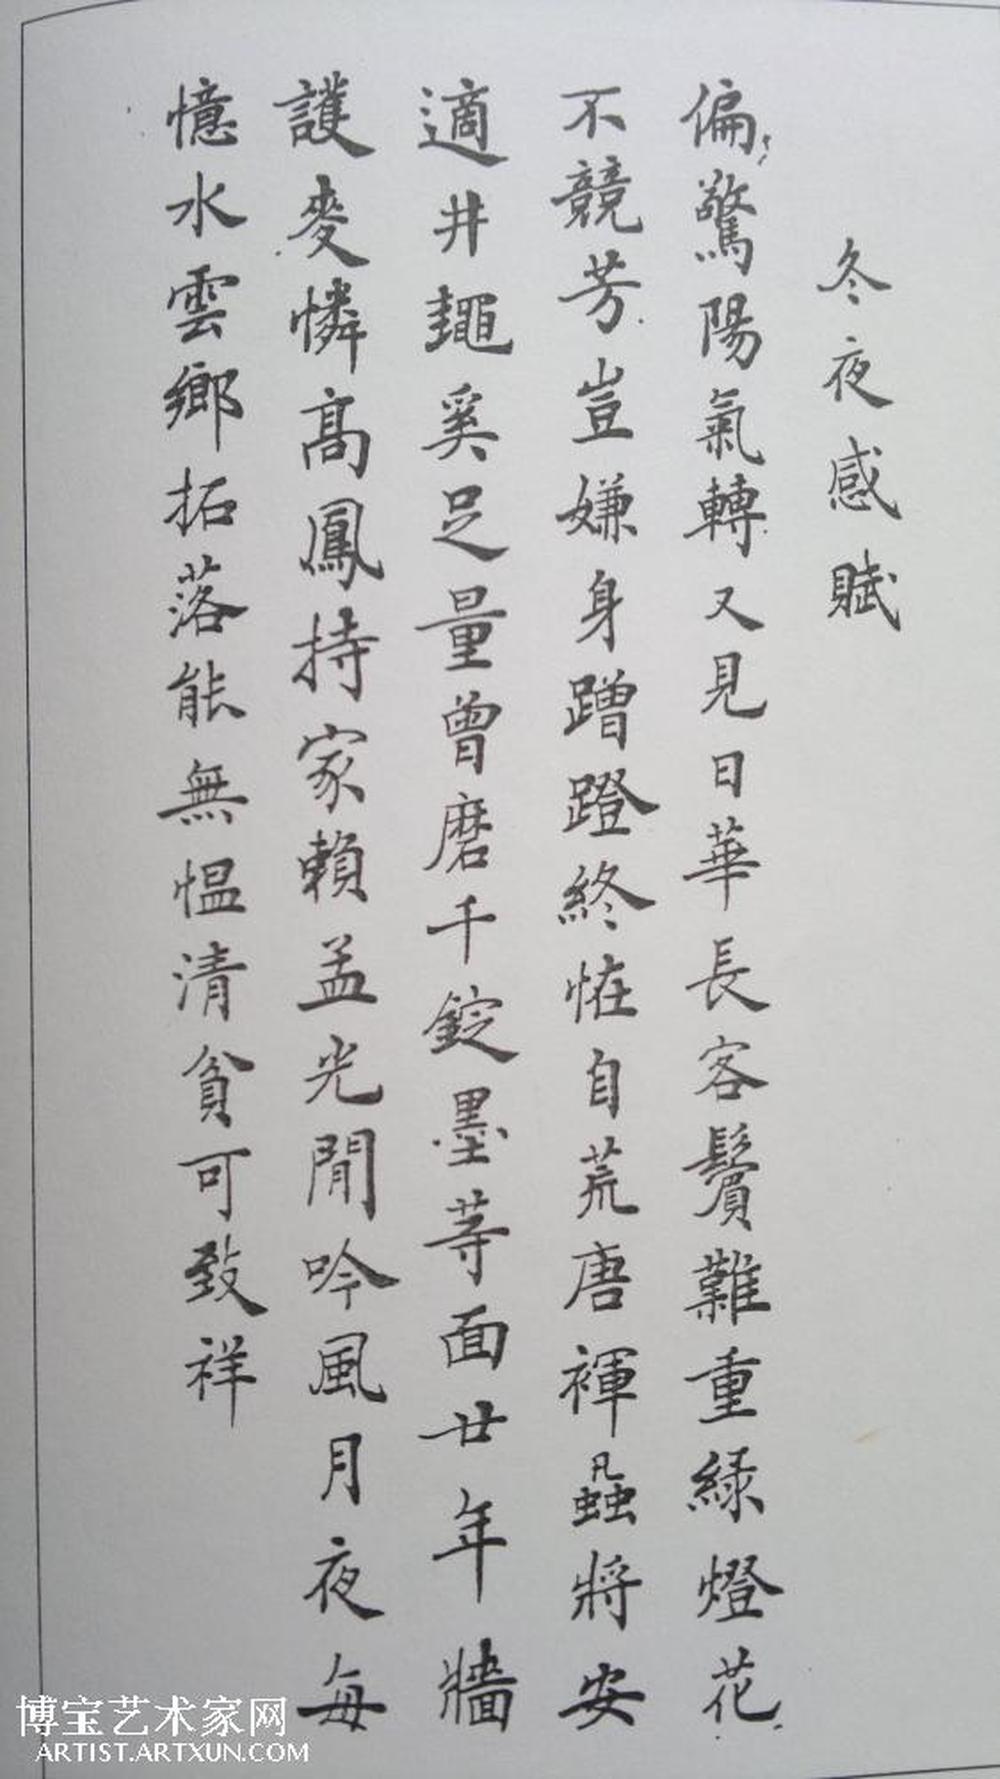 冬夜感賦
偏驚陽氣轉又見日華長客鬢難重綠燈花
不競芳豈嫌身蹭蹬終恠自荒唐褌蝨將安
適井䵷奚足量曾磨千錠墨等面廿年牆
護麥憐高鳳持家賴孟光閒吟風月夜每
憶水雲鄉拓落能無愠清貧可致祥
博宝艺术家网
ARTIST.ARTXUN.COM